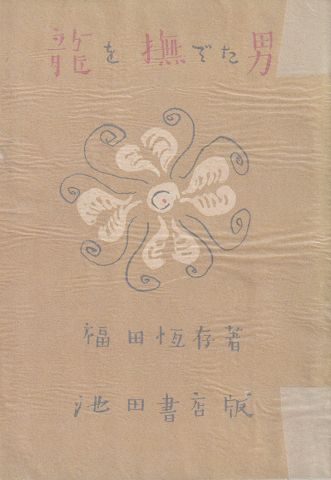 龍を撫でた男
福田恆存著
池田書店版